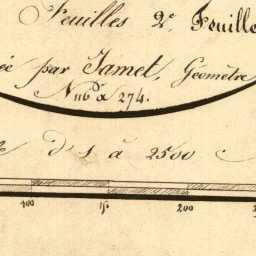 Feuilles 2e. Feuille
par Jamet, Géomètre
274.
d 1 à 2500
100 150 200